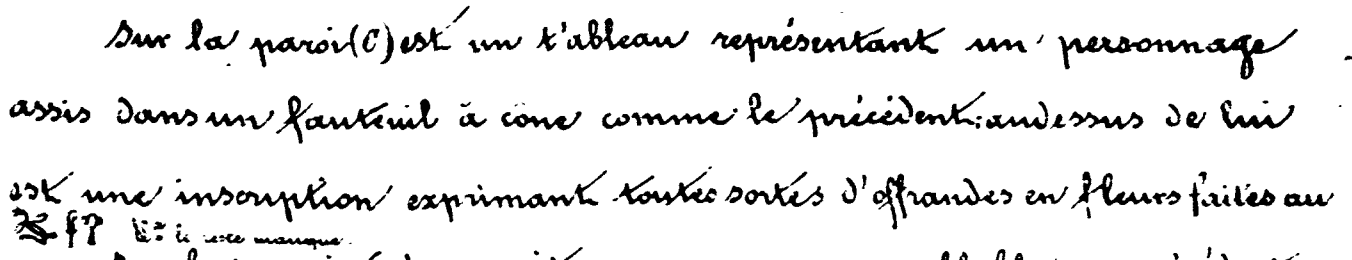 Sur la paroi (C) est un t'ableau représentant un personnage
assis dans un fauteuil à cône comme le précédent: audessus de lui
est une inscription exprimant toutes sortes d'offrandes en fleurs faites au
le reste manque.